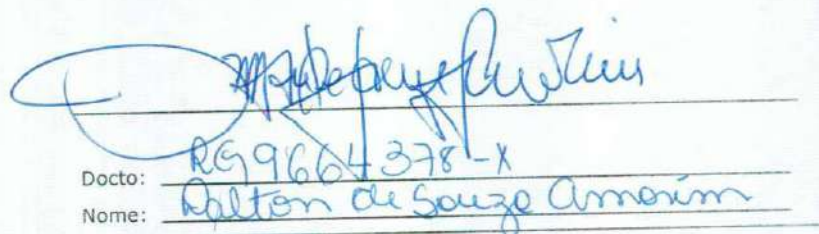 Docto: RG 9664378-X
Nome: Dalton de Souza Amorim